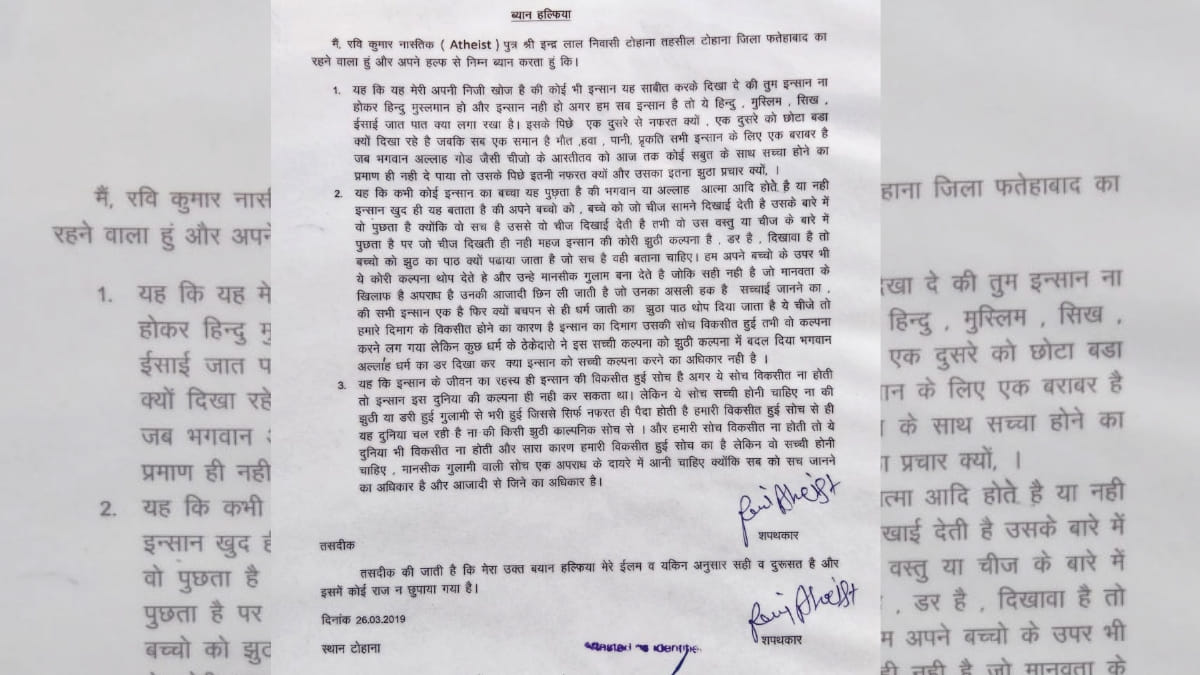 ब्यान हल्फिया
मैं, रवि कुमार नास्तिक ( Atheist ) पुत्र श्री इन्द्र लाल निवासी टोहाना तहसील टोहाना जिला फतेहाबाद का
रहने वाला हुं और अपने हल्फ से निम्न ब्यान करता हुं कि।
1. यह कि यह मेरी अपनी निजी खोज है की कोई भी इन्सान यह साबीत करके दिखा दे की तुम इन्सान ना
होकर हिन्दु मुस्लमान हो और इन्सान नही हो अगर हम सब इन्सान है तो ये हिन्दु , मुस्लिम , सिख ,
ईसाई जात पात क्या लगा रखा है। इसके पिछे एक दुसरे से नफरत क्यों , एक दुसरे को छोटा बडा
क्यों दिखा रहे है जबकि सब एक समान है मौत ,हवा , पानी, प्रकृति सभी इन्सान के लिए एक बराबर है
जब भगवान अल्लाह गोड जैसी चीजो के आस्तीतव को आज तक कोई सबुत के साथ सच्चा होने का
प्रमाण ही नही दे पाया तो उसके पिछे इतनी नफरत क्यों और उसका इतना झुठा प्रचार क्यों, ।
2. यह कि कभी कोई इन्सान का बच्चा यह पुछता है की भगवान या अल्लाह आत्मा आदि होते है या नही
इन्सान खुद ही यह बताता है की अपने बच्चो को , बच्चे को जो चीज सामने दिखाई देती है उसके बारे में
वो पुछता है क्योंकि वो सच है उससे वो चीज दिखाई देती है तभी वो उस वस्तु या चीज के बारे में
पुछता है पर जो चीज दिखती ही नही महज इन्सान की कोरी झुठी कल्पना है , डर है , दिखावा है तो
बच्चो को झुठ का पाठ क्यों पढाया जाता है जो सच है वही बताना चाहिए। हम अपने बच्चो के उपर भी
ये कोरी कल्पना थोप देते हे और उन्हे मानसीक गुलाम बना देते है जोकि सही नही है जो मानवता के
खिलाफ है अपराध है उनकी आजादी छिन ली जाती है जो उनका असली हक है सच्चाई जानने का ,
की सभी इन्सान एक है फिर क्यों बचपन से ही धर्म जाती का झुठा पाठ थोप दिया जाता है ये चीजे तो
हमारे दिमाग के विकसीत होने का कारण है इन्सान का दिमाग उसकी सोच विकसीत हुई तभी वो कल्पना
करने लग गया लेकिन कुछ धर्म के ठेकेदारो ने इस सच्ची कल्पना को झुठी कल्पना में बदल दिया भगवान
अल्लांह धर्म का डर दिखा कर क्या इन्सान को सच्ची कल्पना करने का अधिकार नही है ।
3. यह कि इन्सान के जीवन का रहस्य ही इन्सान की विकसीत हुई सोच है अगर ये सोच विकसीत ना होती
तो इन्सान इस दुनिया की कल्पना ही नही कर सकता था। लेकिन ये सोच सच्ची होनी चाहिए ना की
झुठी या डरी हुई गुलामी से भरी हुई जिससे सिर्फ नफरत ही पैदा होती है हमारी विकसीत हुई सोच से ही
यह दुनिया चल रही है ना की किसी झुठी काल्पनिक सोच से । और हमारी सोच विकसीत ना होती तो ये
दुनिया भी विकसीत ना होती और सारा कारण हमारी विकसीत हुई सोच का है लेकिन वो सच्ची होनी
चाहिए , मानसीक गुलामी वाली सोच एक अपराध के दायरे में आनी चाहिए क्योंकि सब को सच जानने
का अधिकार है और आजादी से जिने का अधिकार है।
Ravi Atheist
शपथकार
तसदीक
तसदीक की जाती है कि मेरा उक्त बयान हल्फिया मेरे ईलम व यकिन अनुसार सही व दुरूसत है और
इसमें कोई राज न छुपाया गया है।
Ravi Atheist
दिनांक 26.03.2019
शपथकार
स्थान टोहाना
मैं, रवि कुमार
रहने वाला हुं और
1. यह कि यह
होकर हिन्दु
ईसाई जात
क्यों दिखा रहे
जब भगवान
प्रमाण ही नही
2. यह कि कभी
इन्सान खुद
वो पुछता है
पुछता है पर
बच्चो को
जिला फतेहाबाद का
दे की तुम इन्सान ना
हिन्दु , मुस्लिम , सिख ,
एक दुसरे को छोटा बडा
के लिए एक बराबर है
के साथ सच्चा होने का
प्रचार क्यों, ।
आदि होते है या नही
देती है उसके बारे में
वस्तु या चीज के बारे में
, डर है , दिखावा है तो
अपने बच्चो के उपर भी
नही है जो मानवता के